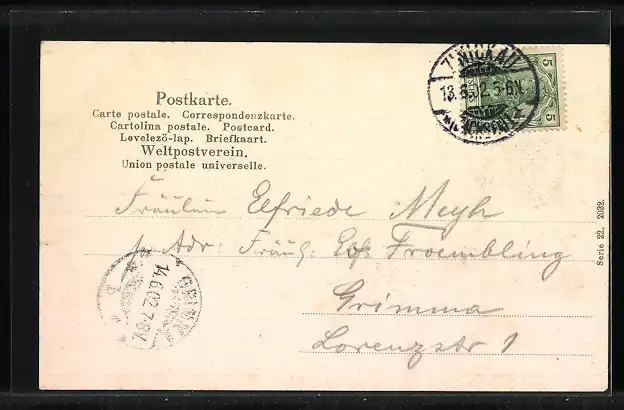 Postkarte.
Carte postale. Correspondenzkarte.
Cartolina postale. Postcard.
Levelező-lap. Briefkaart.
Weltpostverein.
Union postale universelle.
ZWICKAU
13.6.02.5-6N.
5
5
Fräulein Elfriede Meyh
Adr: Fräul. Froembling
Grimma
Lorenzstr 1
GRIMMA
14.6.02.7-8V.
Serie 22. 2032.